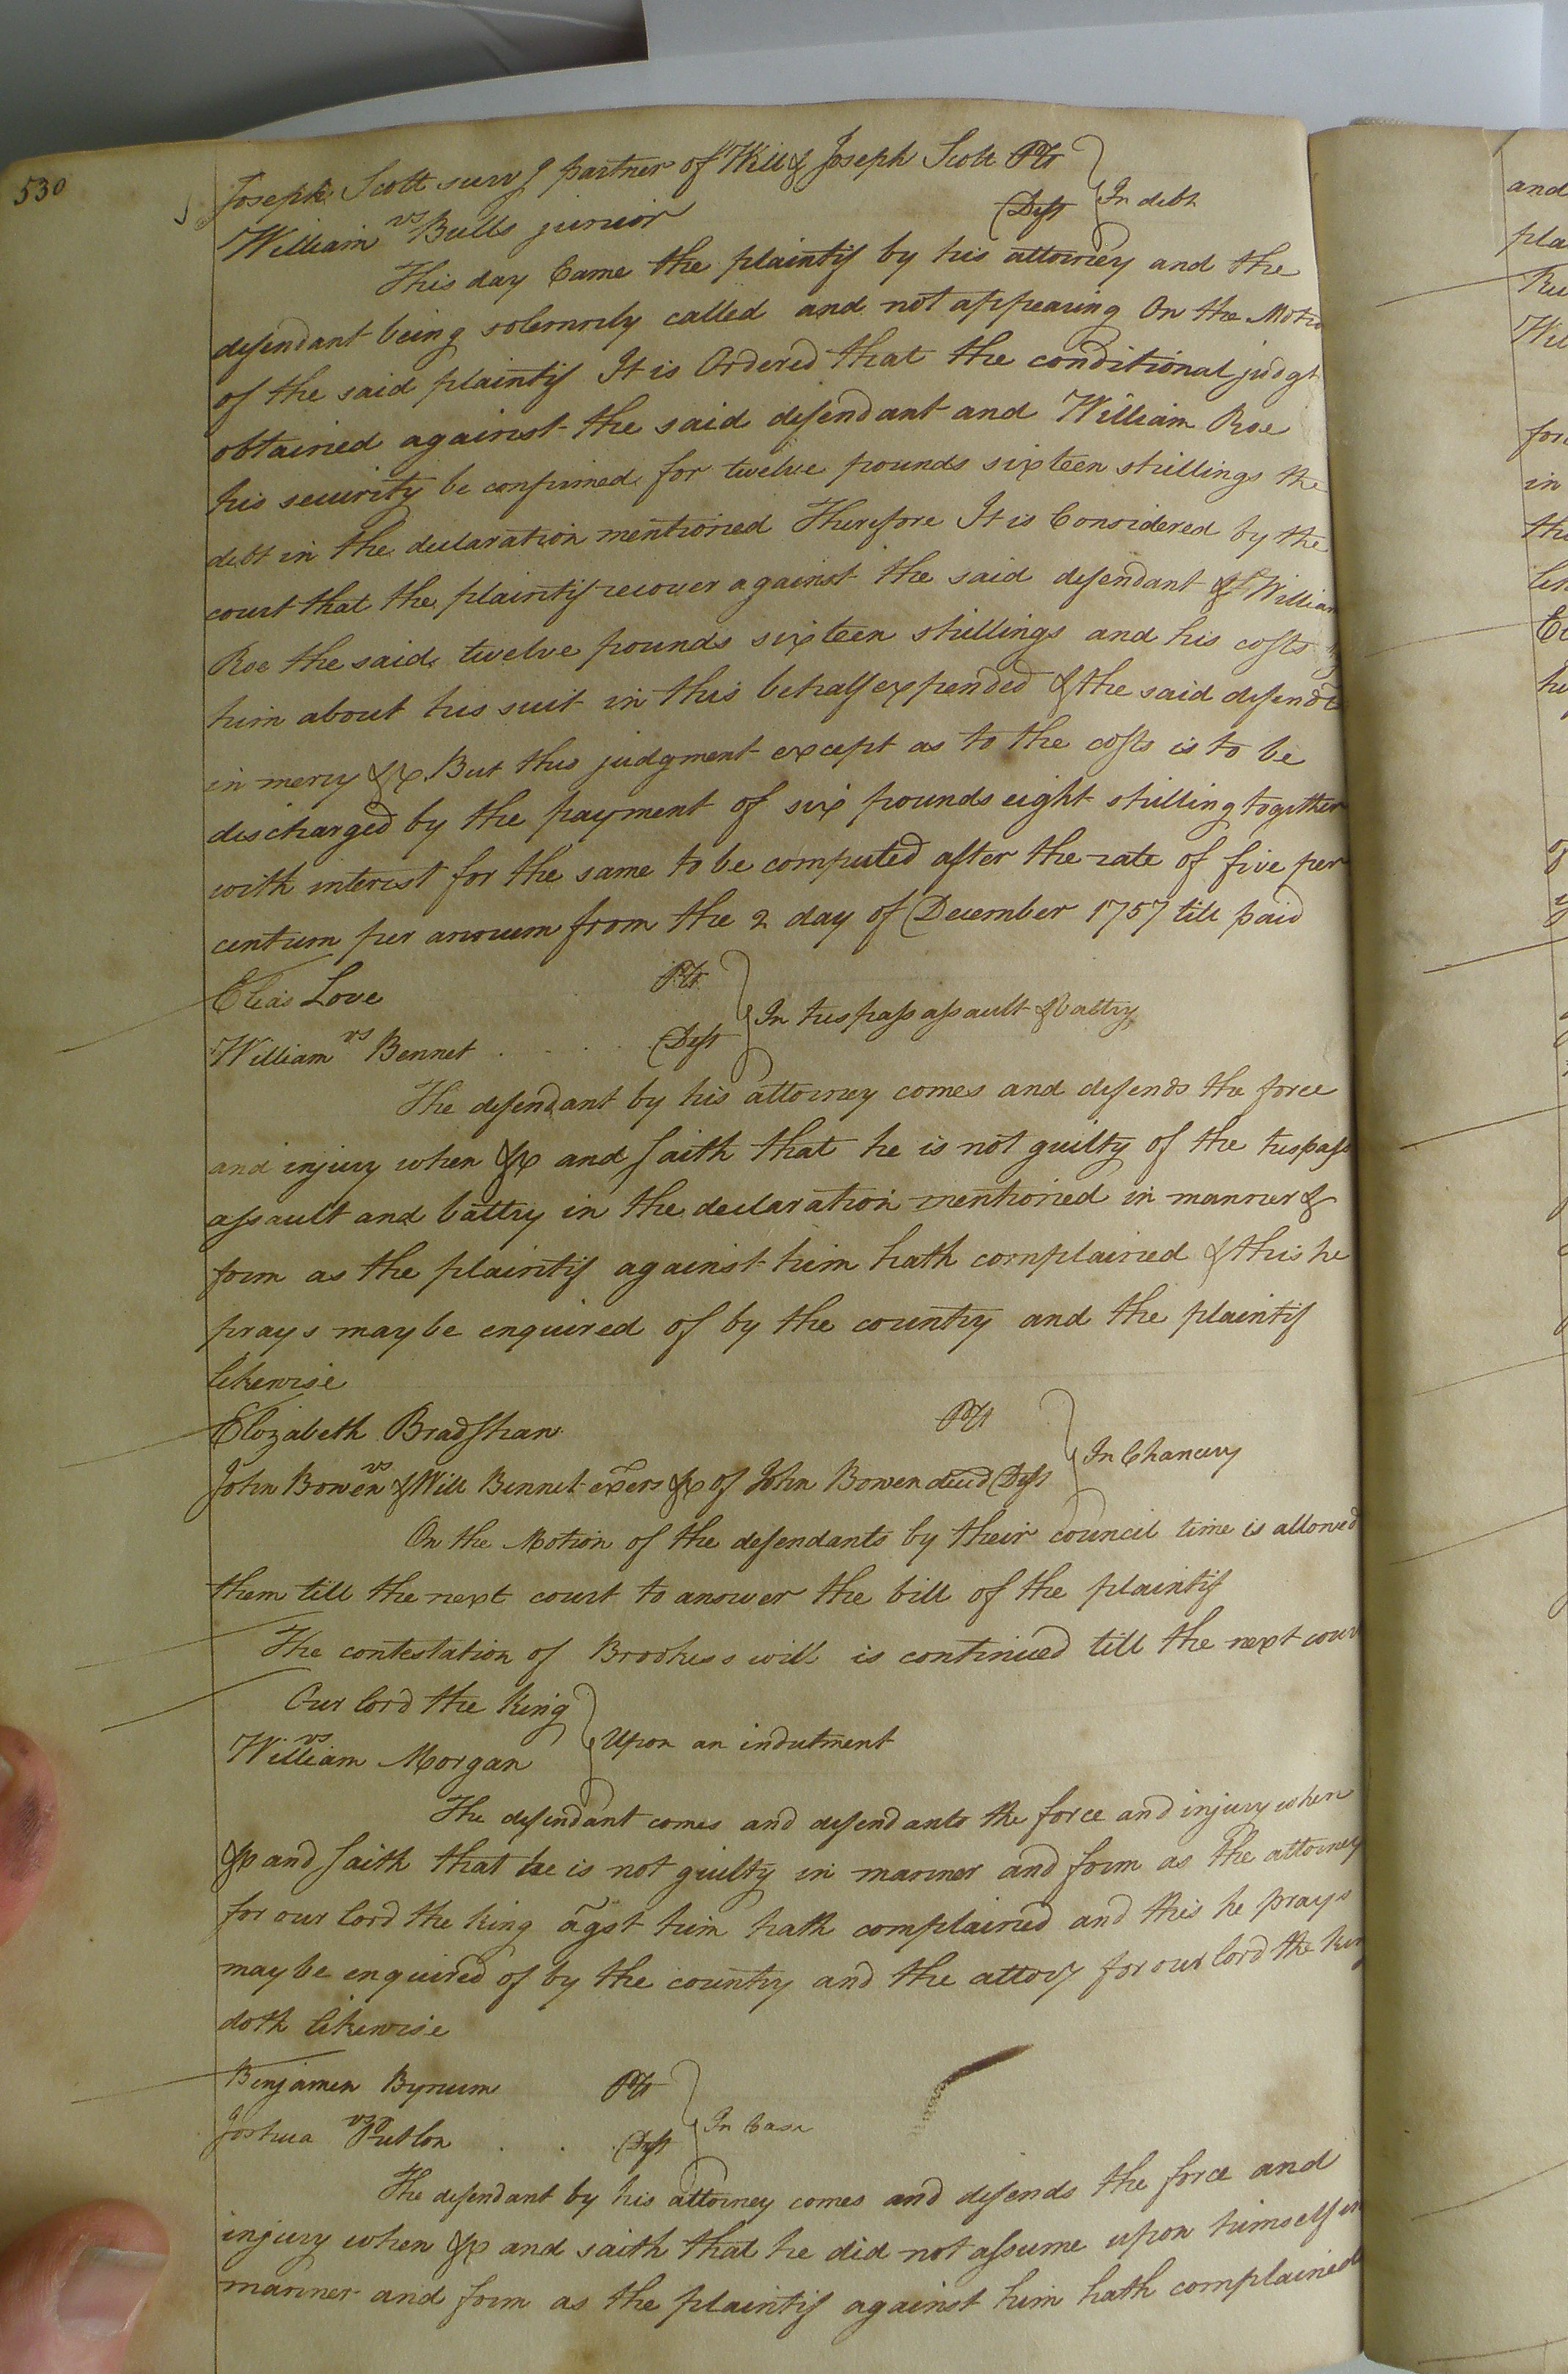 530
Joseph Scott survg partner of Will & Joseph Scott Plt
vs
William Bulls junior Deft
In debt
This day Came the plaintif by his attorney and the
defendant being solemnly called and not appearing On the Motio
of the said plaintif It is Ordered that the conditional judgt
obtained against the said defendant and William Roe
his security be confirmed for twelve pounds sixteen shillings the
debt in the declaration mentioned Therefore It is Considered by the
court that the plaintif recover against the said defendant & William
Roe the said twelve pounds sixteen shillings and his costs by
him about his suit in this behalf expended & the said defendt
in mercy &c. But this judgment except as to the costs is to be
discharged by the payment of six pounds eight shilling together
with interest for the same to be computed after the rate of five per
centum per annum from the 2 day of December 1757 till paid
Elias Love Plt
vs
William Bennet . . . . Deft
In trespass assault & battry
The defendant by his attorney comes and defends the force
and injury when &c and saith that he is not guilty of the trespass
assault and battry in the declaration mentioned in manner &
form as the plaintif against him hath complained & this he
prays may be enquired of by the country and the plaintif
likewise
Elizabeth Bradshaw Plt
vs
John Bowen & Will Bennet exers &c of John Bowen decd Defts
In Chancery
On the Motion of the defendants by their council time is allowed
them till the next court to answer the bill of the plaintif
The contestation of Brookess will is continued till the next cour
Our lord the King
vs
William Morgan
Upon an indictment
The defendant comes and defendants the force and injury when
&c and saith that he is not guilty in manner and form as the attorney
for our lord the King agst him hath complained and this he prays
may be enquired of by the country and the attory for our lord the King
doth likewise
Benjamin Bynum Plt
vs
Joshua . . Deft
In Case
The defendant by his attorney comes and defends the force and
injury when &c and saith that he did not assume upon himself in
manner and form as the plaintif against him hath complained
and
pla
Wil
in